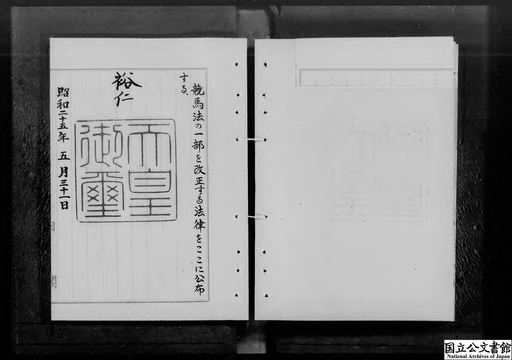 競馬法の一部を改正する法律をここに公布
する。
裕仁
天皇
御璽
昭和二十五年五月三十一日
国立公文書館
National Archives of Japan